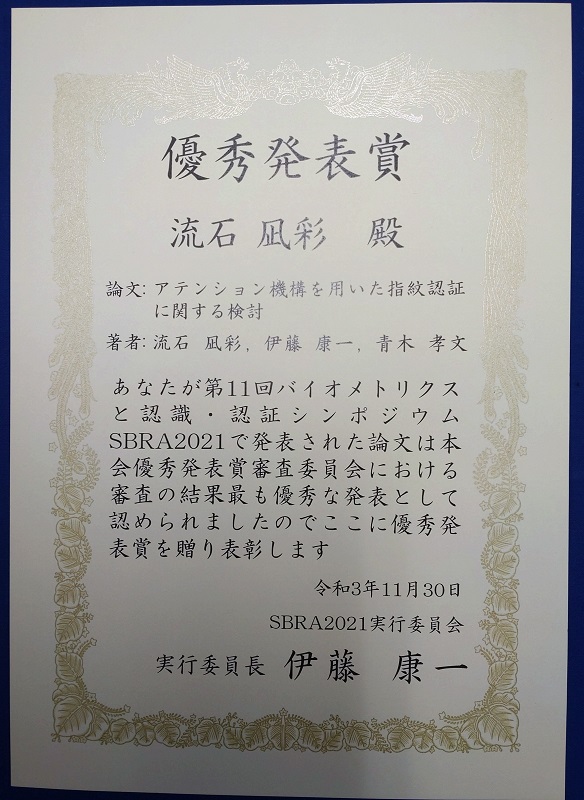 優秀発表賞
流石 凪彩 殿
論文: アテンション機構を用いた指紋認証
に関する検討
著者: 流石 凪彩, 伊藤 康一, 青木 孝文
あなたが第11回バイオメトリクス
と認識・認証シンポジウム
SBRA2021で発表された論文は本
会優秀発表賞審査委員会における
審査の結果最も優秀な発表として
認められましたのでここに優秀発
表賞を贈り表彰します
令和3年11月30日
SBRA2021実行委員会
実行委員長 伊藤 康一